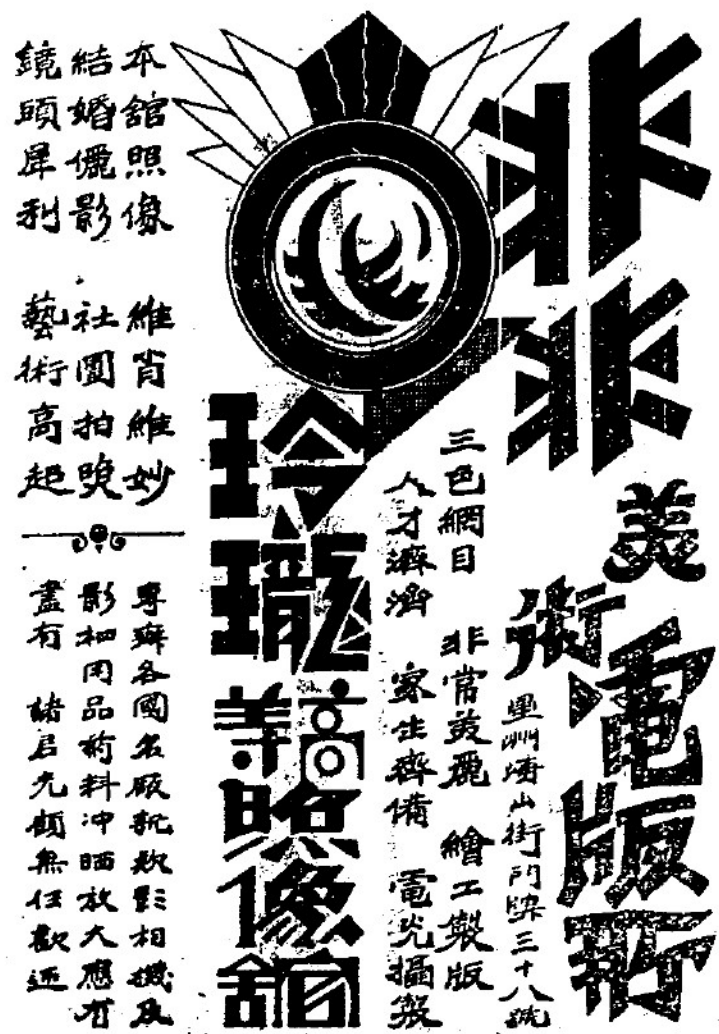 非非
美術電版所
星洲海山街門牌三十八號
三色網目 非常美麗 繪工製版
人才濟濟 家生齊備 電光攝製
玲瓏高等照像舘
本舘照像 維肖維妙
結婚儷影 社團拍
鏡頭犀利 藝術高超
專辦各國名廠新欵影相機及
影相用品葯料冲晒放大應有
盡有 諸君光顧無任歡迎